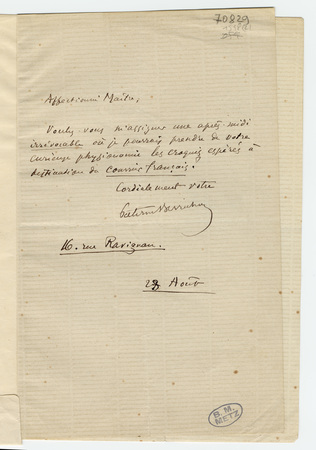 70829
Affectionné Maître,
Voulez-vous m'assigner une après-midi
irrévocable où je pourrais prendre de votre
curieuse physionomie les croquis espérés à
destination du courrier français.
Cordialement votre
16, rue Ravignan.
28 Août
B. M.
METZ